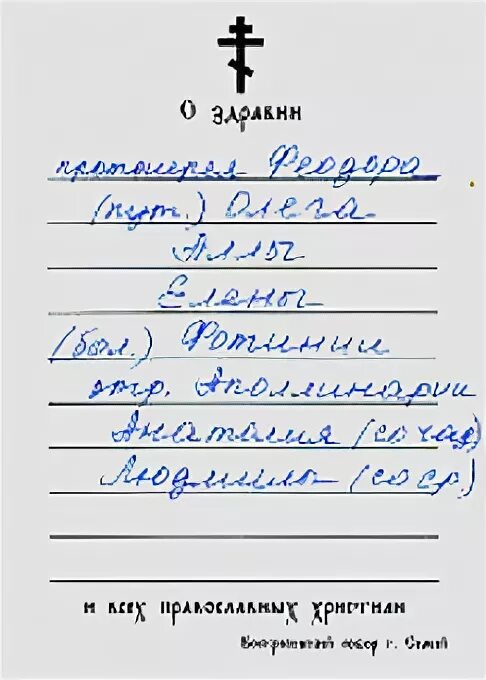 О здравии
протоиерея Феодора
(путеш.) Олега
Аллы
Елены
(бол.) Фотинии
отр. Аполлинарии
Анатолия (со чад)
Людмилы (со ср.)
и всех православных христиан
собор г.